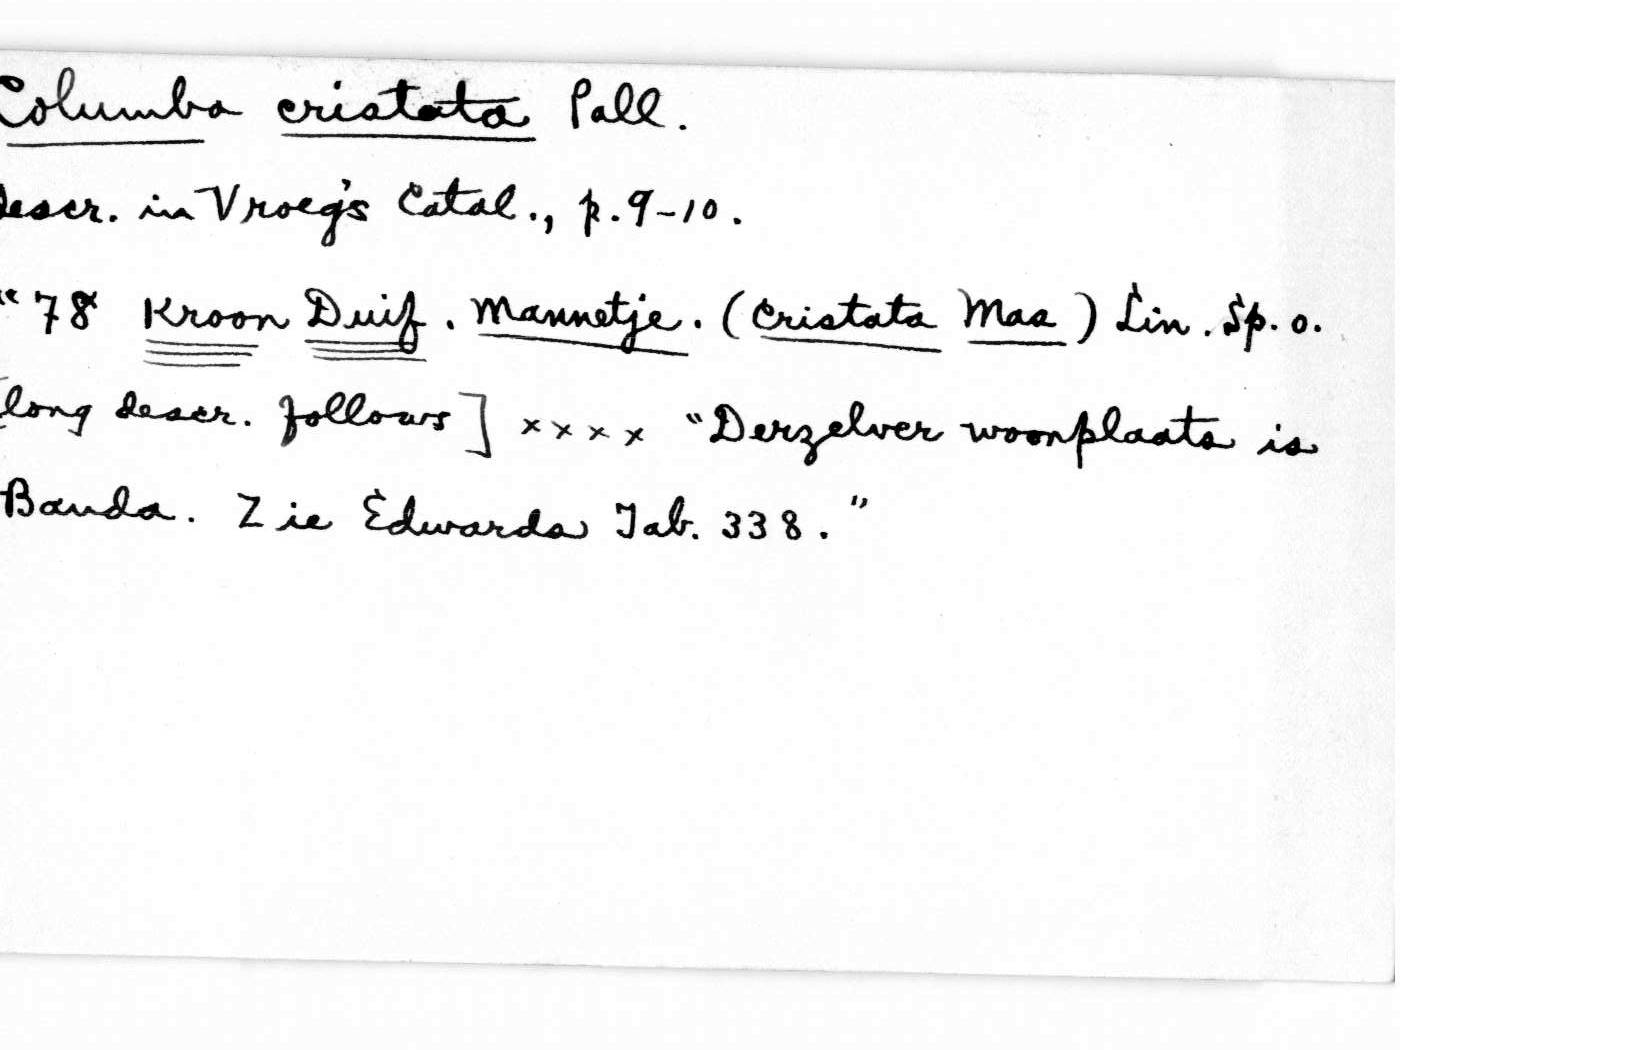 Columba cristata Pall.
descr. in Vroeg's Catal., p. 9-10.
"78 Kroon Duif. Mannetje. (Cristata Mas) Lin. Sp. o.
[long descr. follows] x x x x "Derzelver woonplaats is
Banda. Zie Edwards Tab. 338."